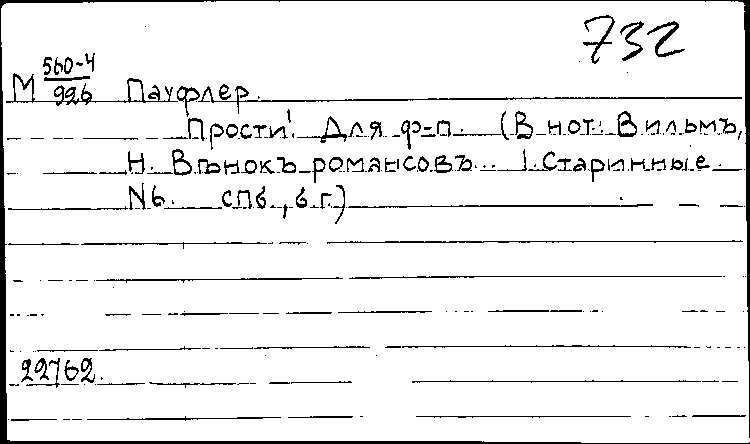 732
М 560-4/996 Пауфлер.
Прости! Для ф-п. (В нот: Вильмъ,
Н. Вѣнокъ романсовъ... 1. Старинные.
N6. СПб., б.г.)
22762.